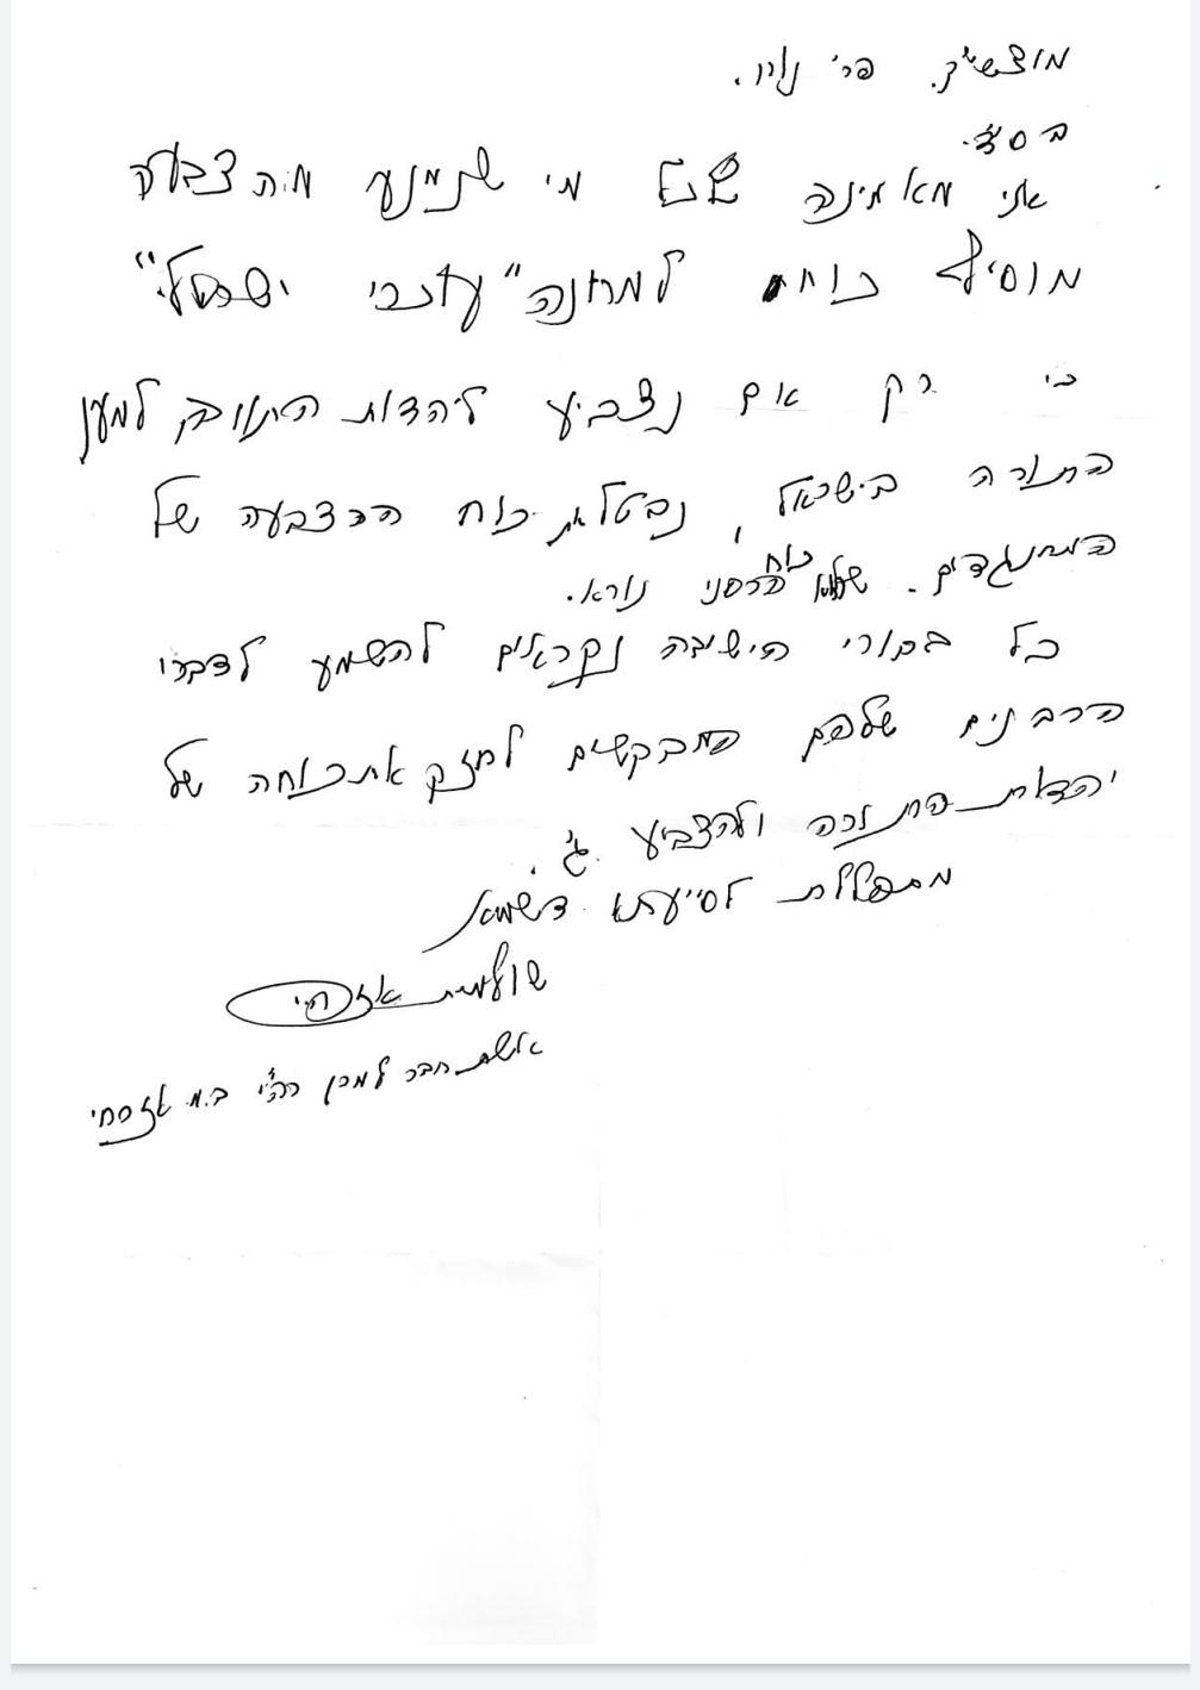 מוצש"ק. פר' נח.
בס"ד.
אני מאמינה שכל מי שנמנע מהצבעה
מוסיף כוח למחנה "עוכרי ישראל".
כי רק אם נצביע ליהדות התורה למען
התורה בישראל, נבטל את כוח ההצבעה של
המתנגדים. שלהם כוח הרסני נורא.
כל בחורי הישיבה נקראים להשמע לדברי
הרבנים שלהם המבקשים לחזק את כוחה של
יהדות התורה ולהצביע ג'.
מתפללת לסייעתא דשמיא
שולמית אזרחי
אשת חבר למרן הרה"ג ב.מ אזרחי